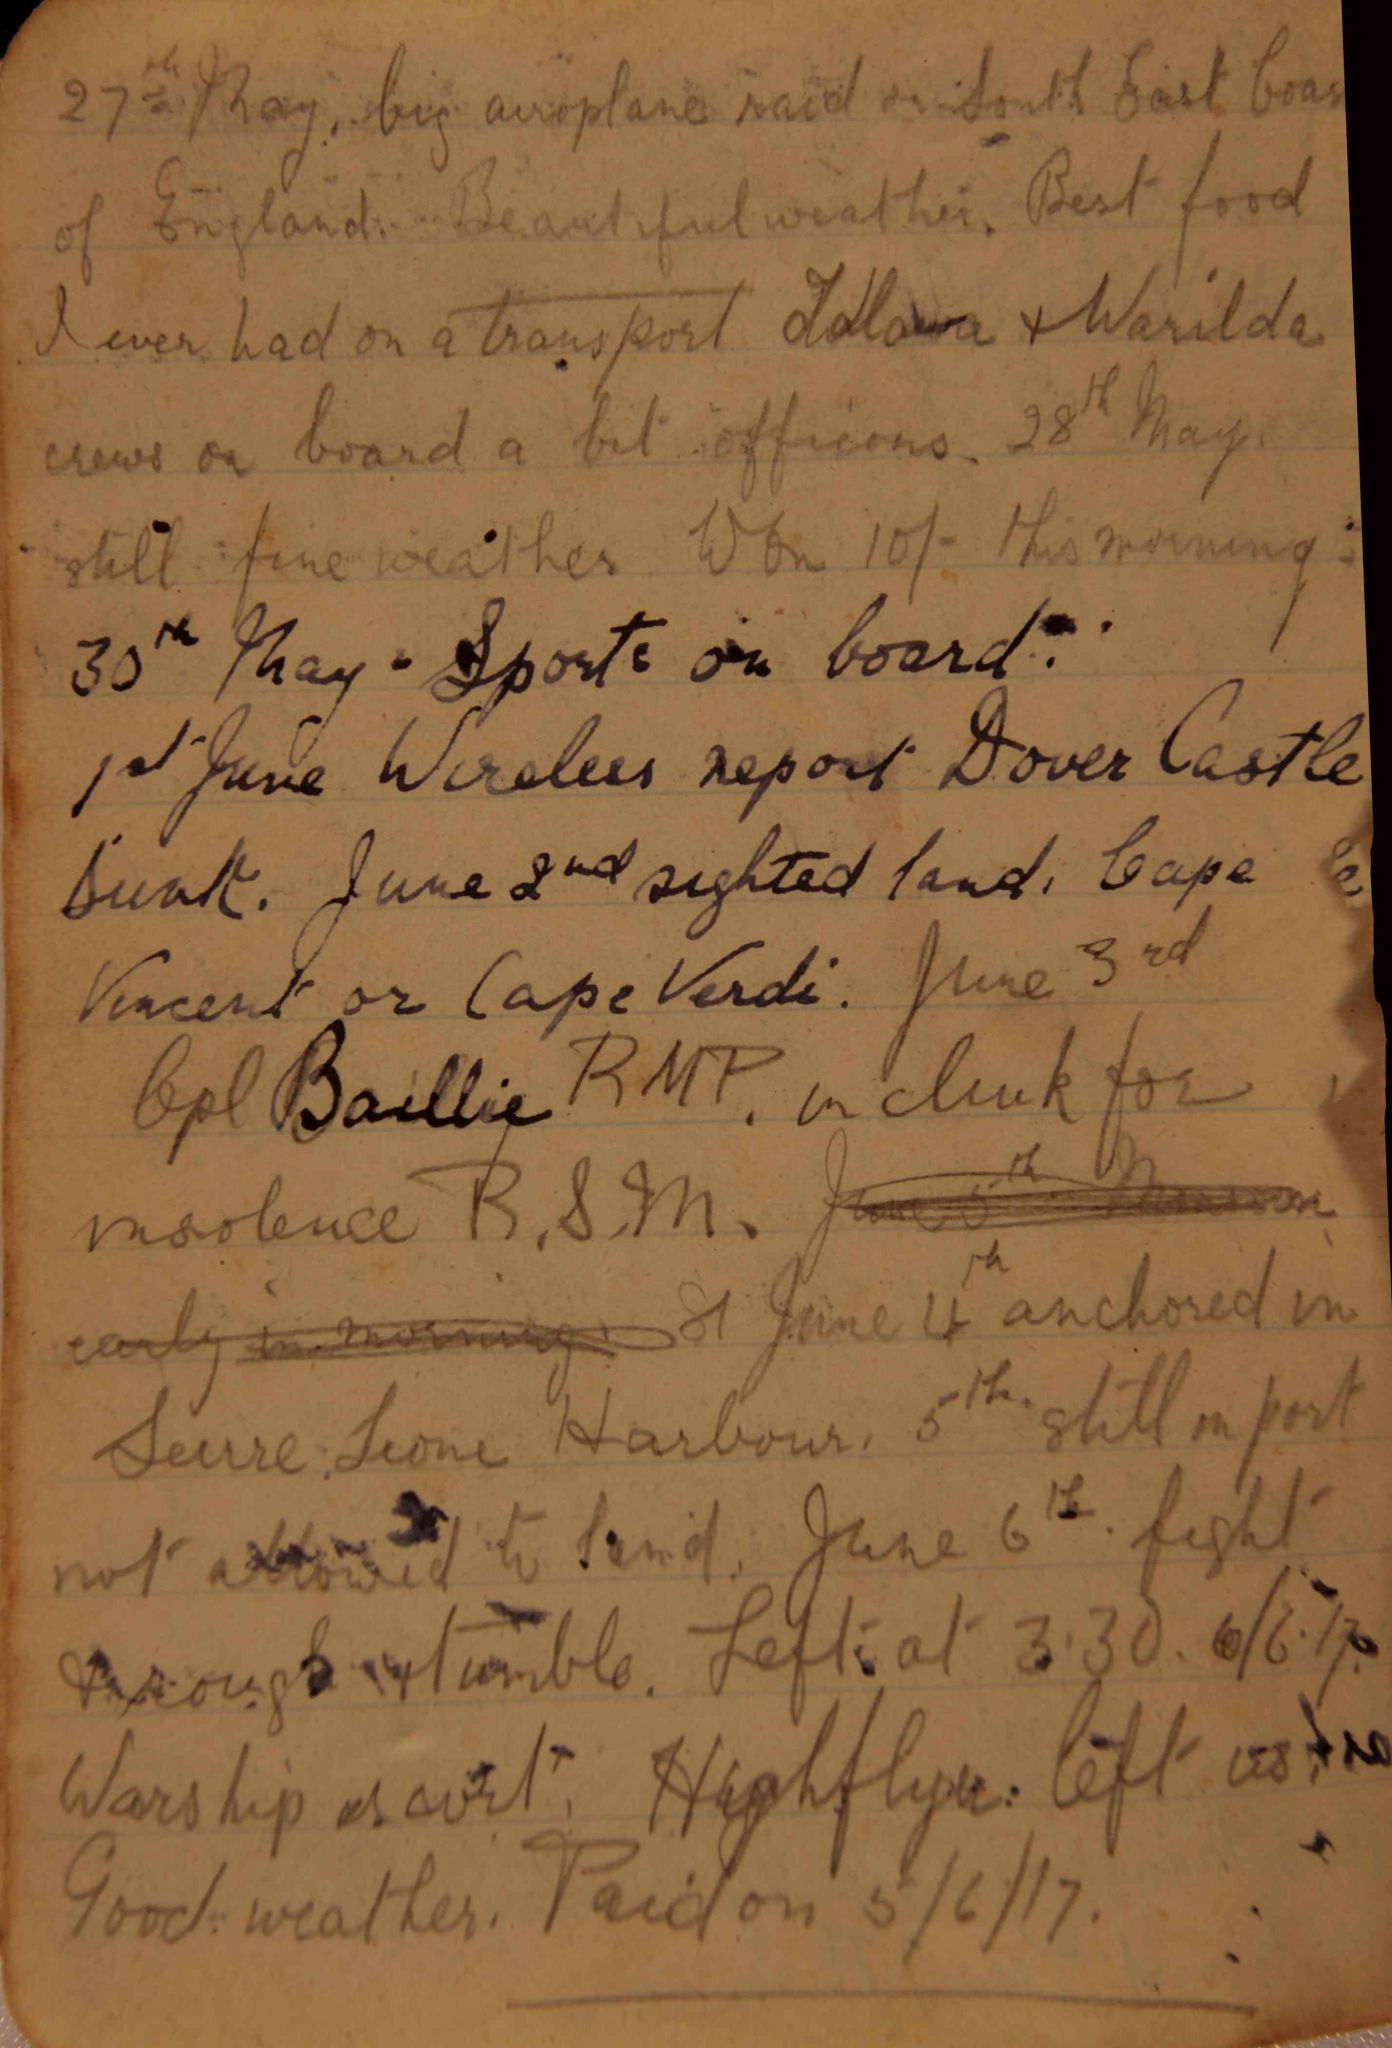 27th May, big aeroplane raid on South East Coas
of England. Beautiful weather. Best food
I ever had on a transport & Warilda
crews on board a bit officious. 28th May.
still fine weather Won 10/- this morning.
30th May. Sports on board.
1st June Wireless report Dover Castle
sunk. June 2nd sighted land. Cape
Vincent or Cape Verdi. June 3rd
Cpl Baillie RMP. in clink for
insolence R.S.M. June 5th
early in morning. June 4th anchored in
Seirre Leone Harbour. 5th still in port
not allowed to land. June 6th fight
& rough & tumble. Left at 3.30. 6/6.17.
Warship escort. Highflyer. left us
Good weather. Paid on 5/6/17.